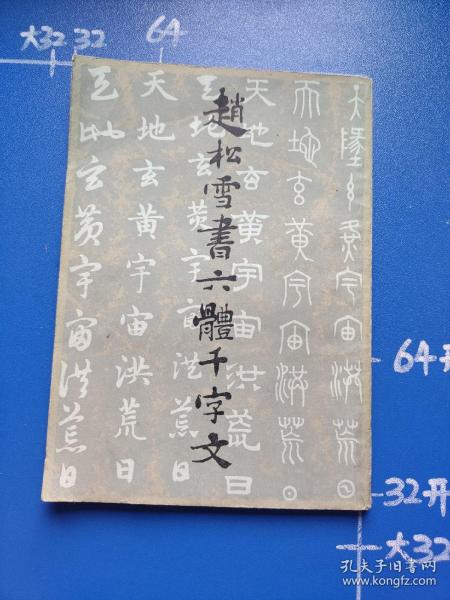 大32 32 64
趙松雪書六體千字文
天墬玄黃宇宙洪荒日
天地玄黃宇宙洪荒日
天地玄黃宇宙洪荒日
天地玄黃宇宙洪荒日
天地玄黃宇宙洪荒日
天地玄黃宇宙洪荒日
64开
32开
大32
孔夫子旧书网
www.kongfz.com